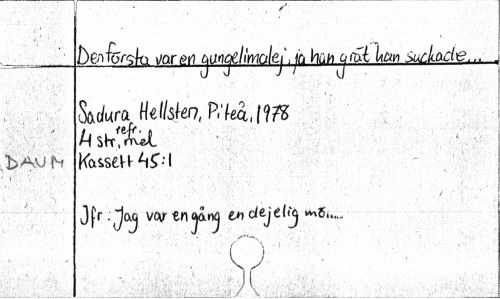 Den första var en gungelimalej, ja han grät han suckade...
Sadura Hellsten, Piteå, 1978
4 str, refr. mel
DAUM Kassett 45:1
Jfr: Jag var en gång en dejelig mö.....